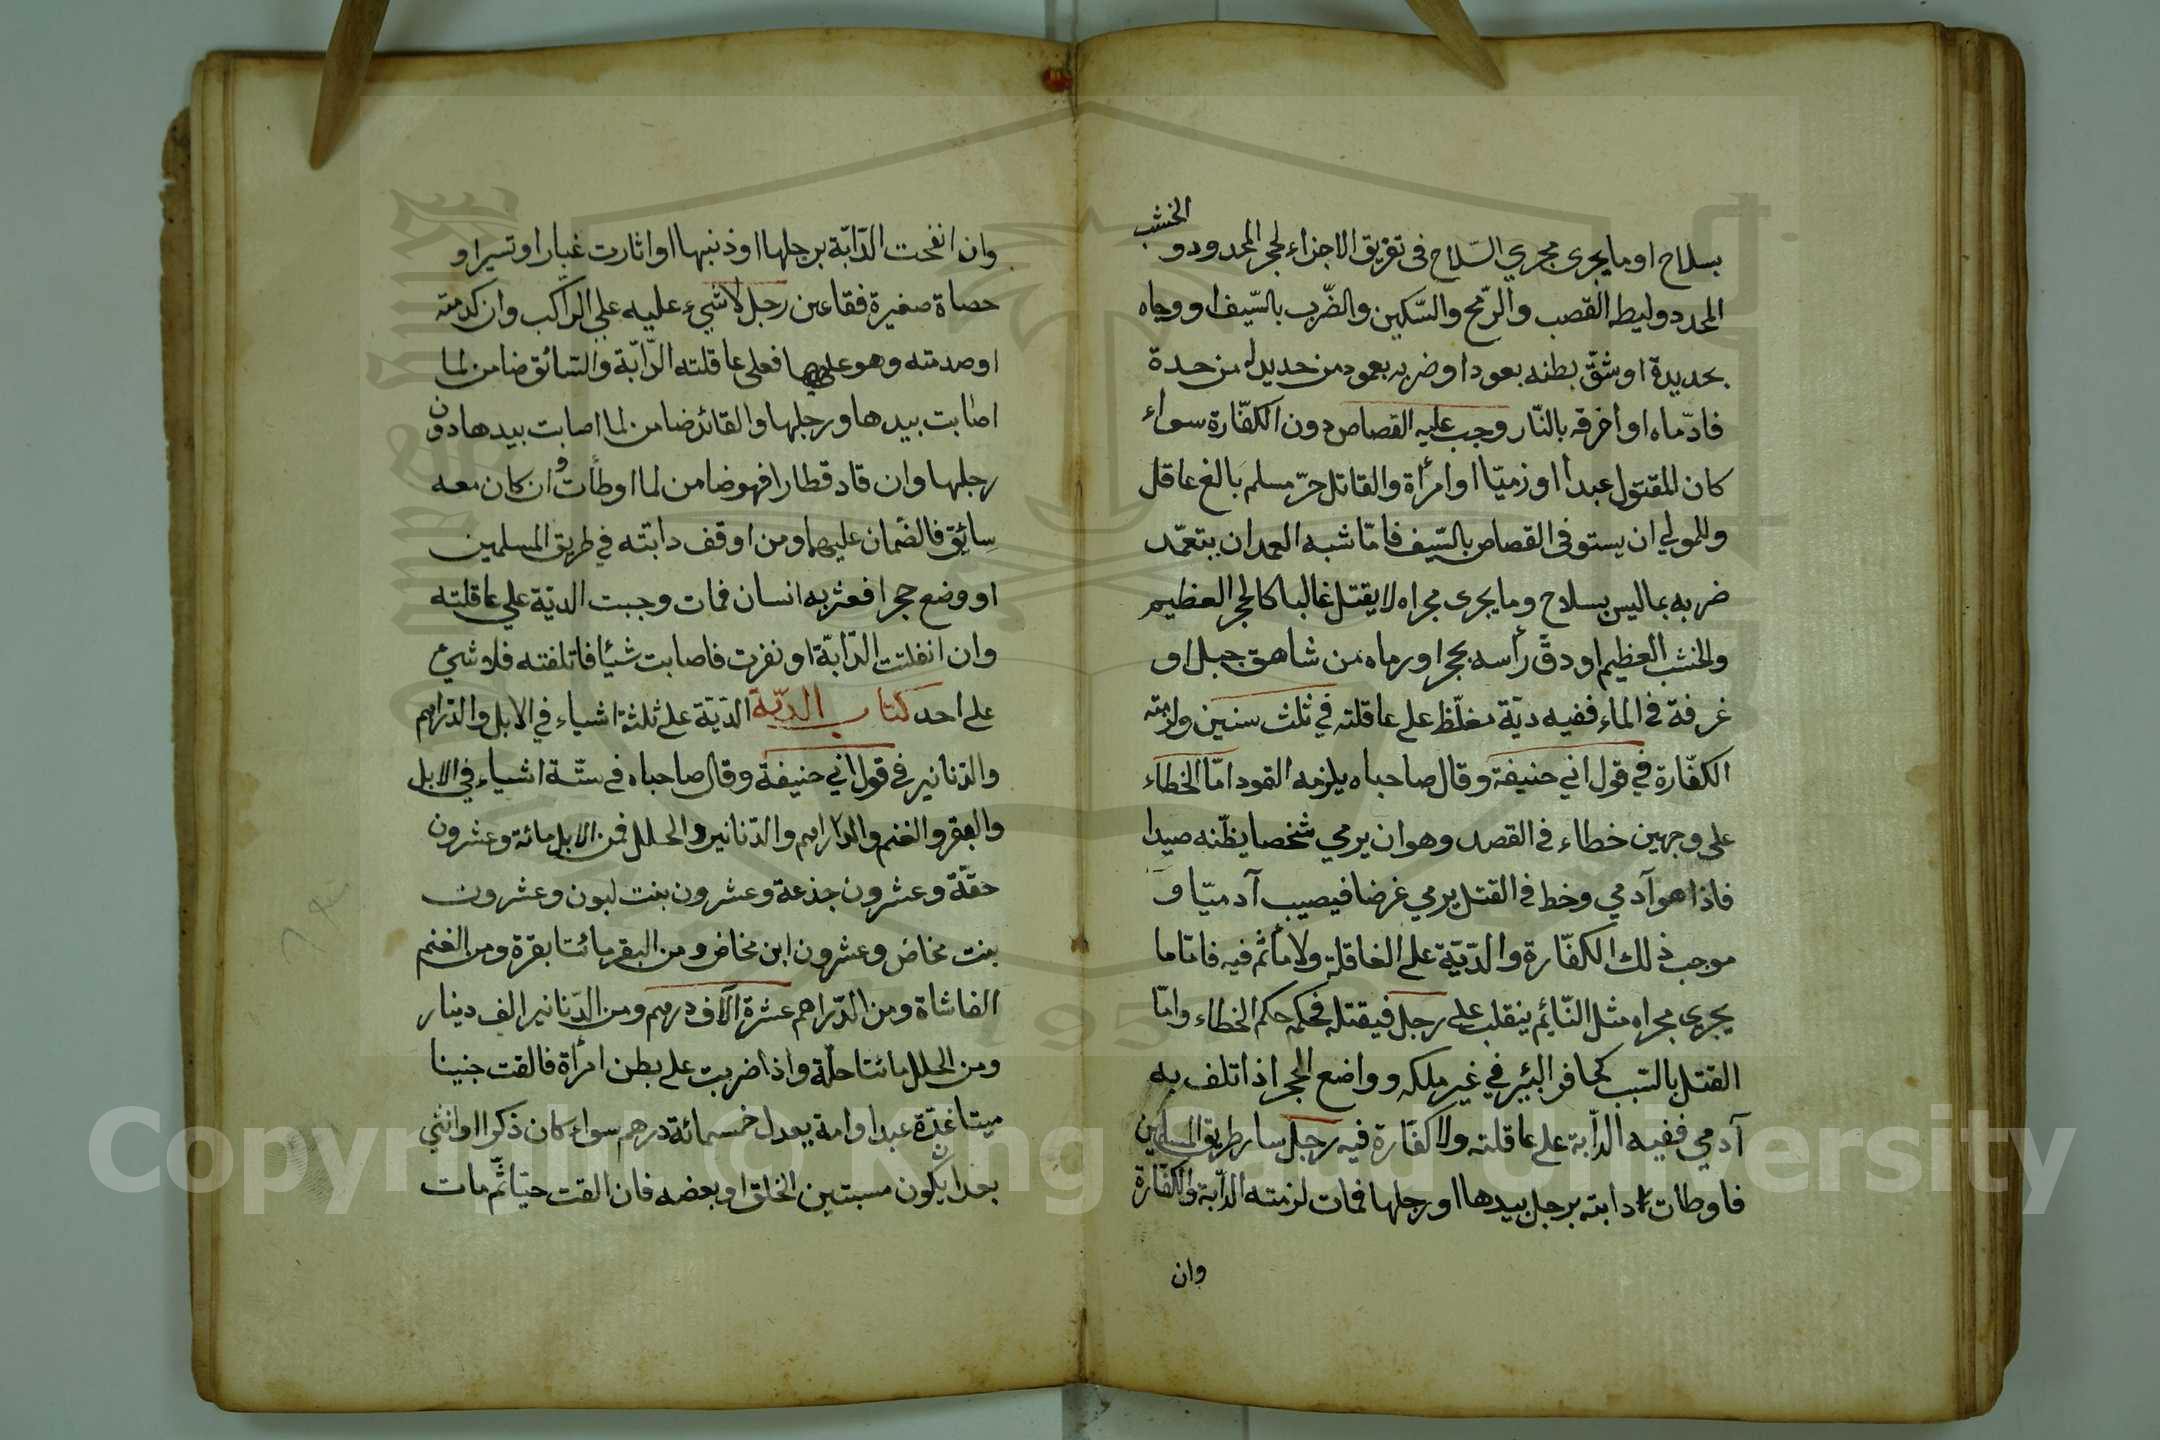 الخشب
بسلاح او ما يجرى مجري السّلاح فى تفريق الاجزاء لحجر المحدود و
المحدد وليطه القصب والرّمح والسّكين والضّرب بالسّيف او وجاه
بحديدة او شقّ بطنه بعود او ضربه بعمود من حديد له من حدة
فادّماه او اخرقه بالنّار وجب عليه القصاص دون الكفّارة سواء
كان المقتول عبدا او زميّا او امرأة والقاتل حرّ مسلم بالغ عاقل
وللمولي ان يستوفى القصاص بالسّيف فامّا شبه العمد ان يتعمّد
ضربه بما ليس بسلاح وما يجرى مجراه لا يقتل غالبا كالحجر العظيم
والخشب العظيم او دقّ رأسه بحجر او رماه من شاهق جبل او
غرفة فى الماء ففيه ديّة مغلّظ على عاقلته في ثلث سنين ولزمته
الكفّارة في قول ابي حنيفة وقال صاحباه يلزمه القود امّا الخطاء
على وجهين خطاء فى القصد وهو ان يرمي شخصا يظنّه صيدا
فاذا هو آدمي وخط فى القتل يرمي غرضا فيصيب آدميّا و
موجب ذلك الكفّارة والدّيّة على العاقلة ولا مأثم فيه فامّا ما
يجرى مجراه مثل النّائم ينقلب على رجل فيقتله فحكمه حكم الخطاء وامّا
القتل بالسّبب كحافر البئر في غير ملكه وواضع الحجر اذا تلف به
آدمي ففيه الدّابة على عاقلته ولا كفّارة فيه رجل سار طريق المسلمين
فاوطات دابته برجل بيدها او رجلها فمات لزمته الدّابة والكفّارة
وان
وان انفحت الدّابّة برجلها او ذنبها او اثارت غبارا او تسيرا و
حصاة صغيرة فقاء عين رجل لا شيء عليه على الراكب وان كدمته
او صدمته وهو عليها فعلى عاقلته الرّابّة والسّائق ضامن لما
اصابت بيدها ورجلها والقائد ضامن لما اصابت بيدها دون
رجلها وان قاد قطارا فهو ضامن لما اوطأت وان كان معه
سائق فالضّمان عليهما ومن اوقف دابته في طريق المسلمين
او وضع حجرا فعثر به انسان فمات وجبت الديّة علي عاقلته
وان انفلتت الدّابّة او نفرت فاصابت شيئا فاتلفته فلا شيئ
على احد كتاب الديّة الدّيّة على ثلثة اشياء في الابل والدّراهم
والدّنانير فى قول ابي حنيفة وقال صاحباه فى ستّة اشياء في الابل
والبقر والغنم والدّراهم والدّنانير والحلل فمن الابل مائة وعشرون
حقّة وعشرون جذعة وعشرون بنت لبون وعشرون
بنت مخاض وعشرون ابن مخاض ومن البقر مائتا بقرة ومن الغنم
الفا شاة ومن الدّراهم عشرة آلاف درهم ومن الدّنانير الف دينار
ومن الحلل مائتا حلّة واذا ضربت على بطن امرأة فالقت جنينا
ميتا غرّة عبدا او امة يعدل خمسمائة درهم سواء كان ذكرا او انثي
بعد ان يكون مستبين الخلق او بعضه فان القت حيّا ثمّ مات
Copyright © King Saud University